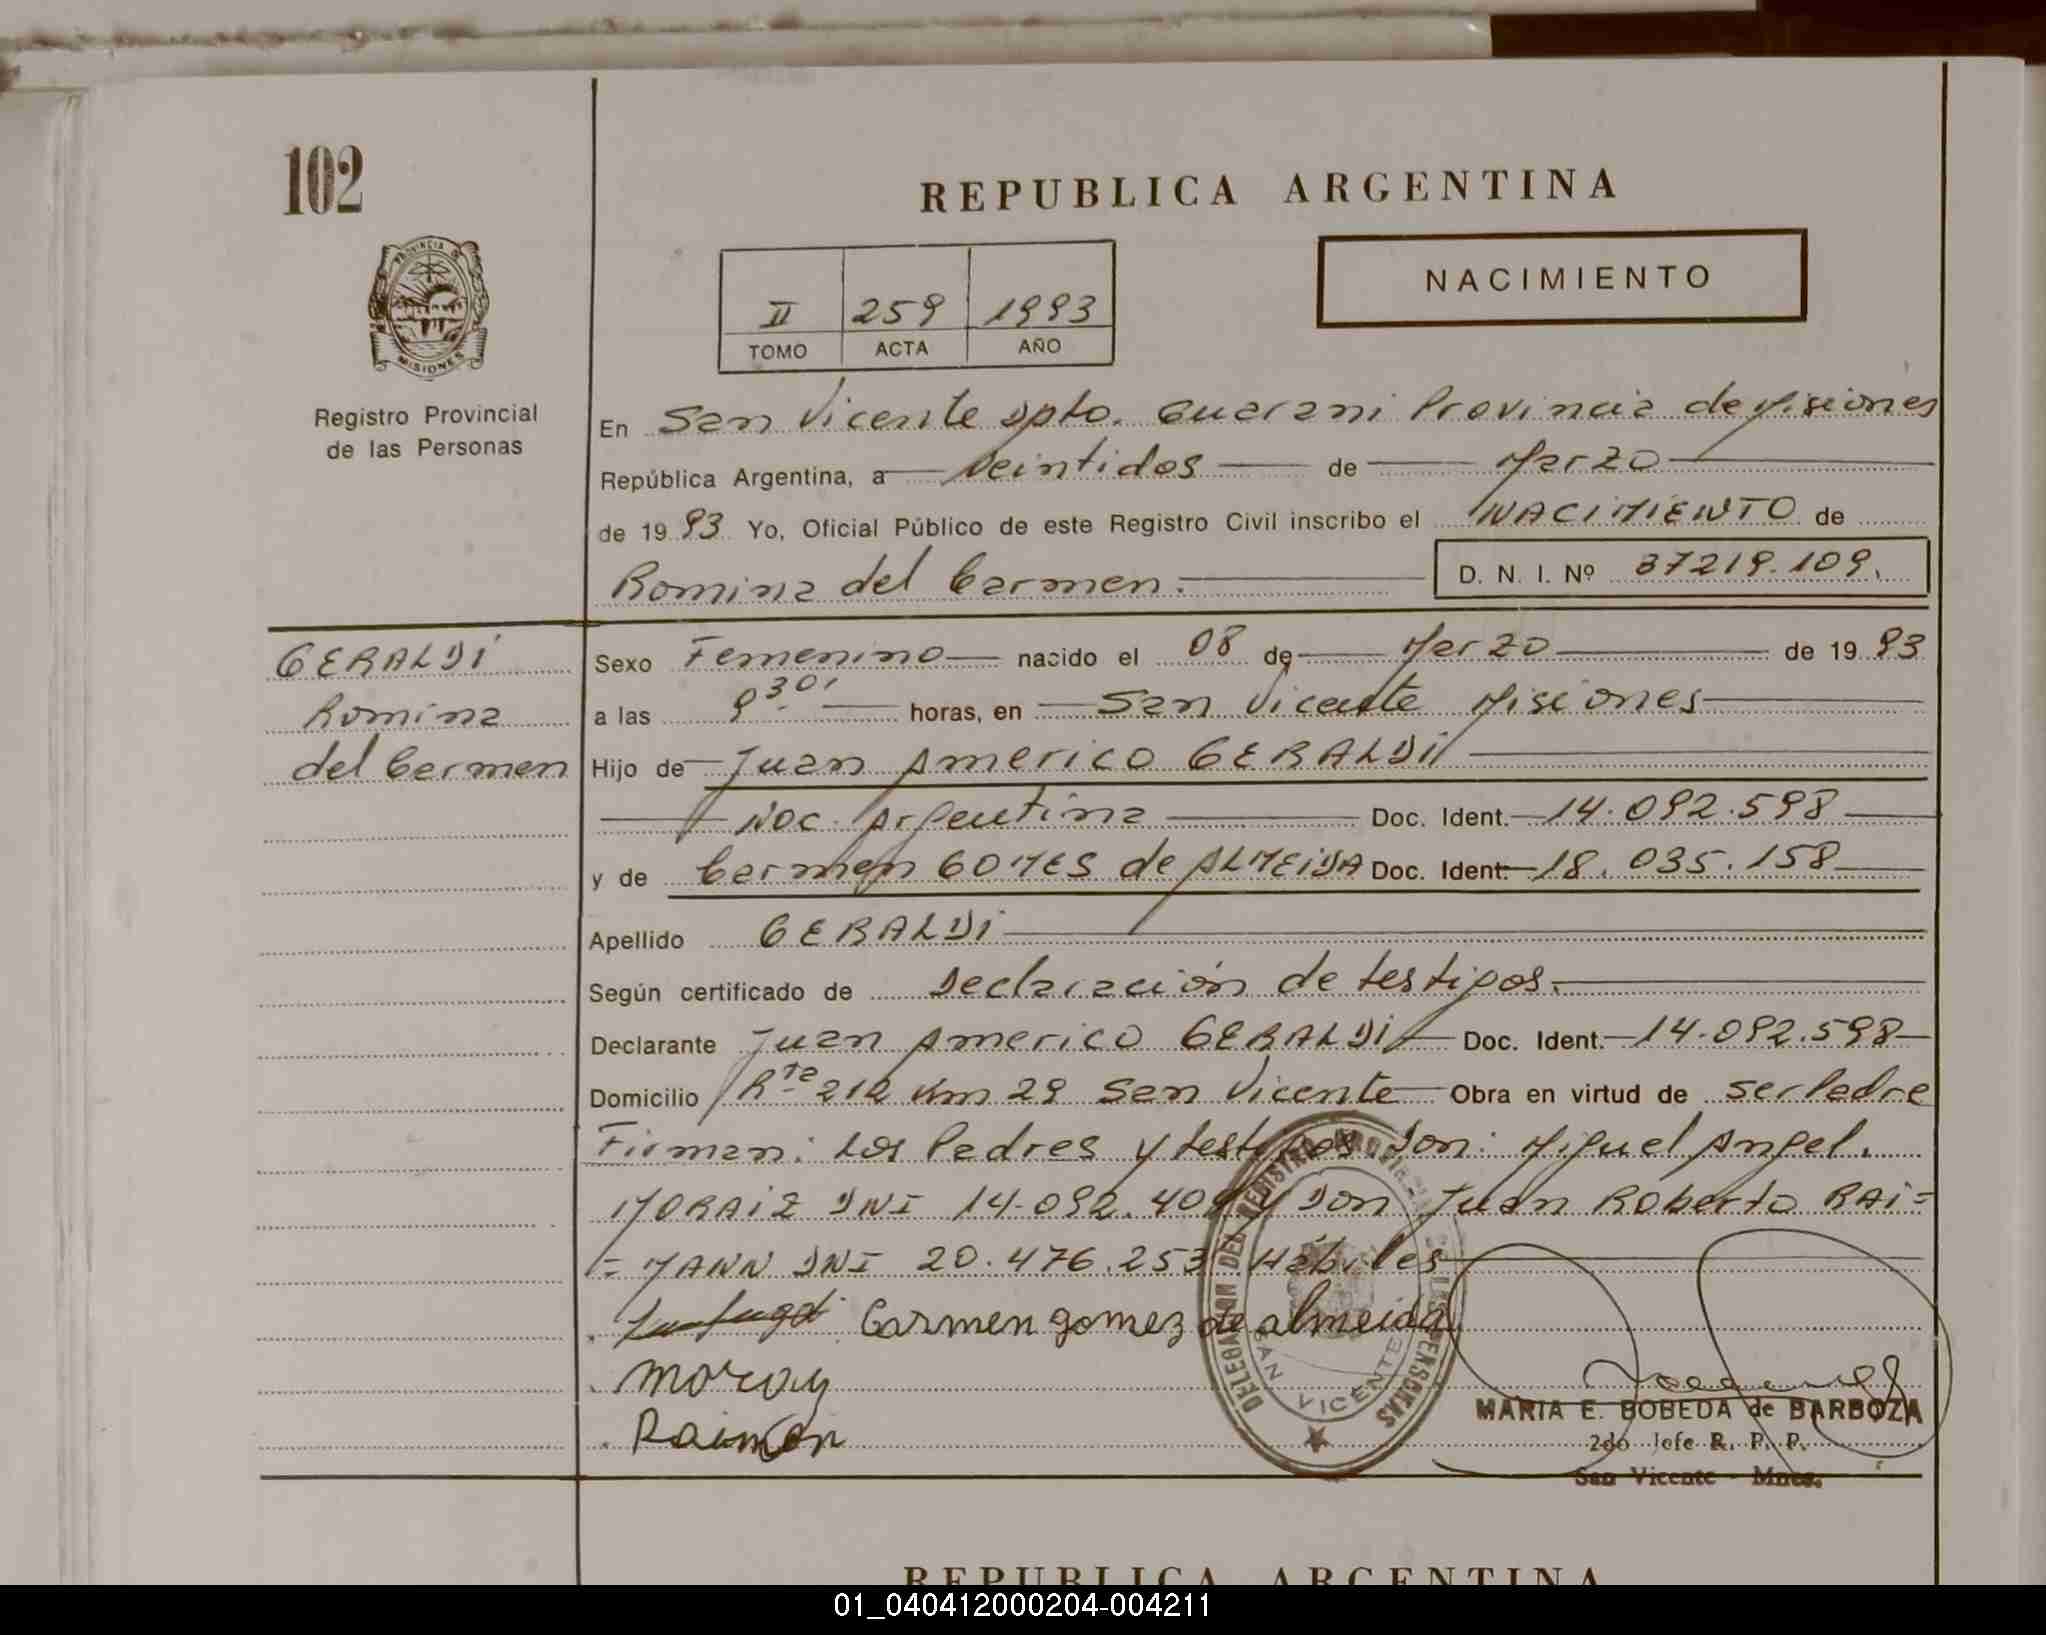 102
REPUBLICA ARGENTINA
PROVINCIA DE
MISIONES
Registro Provincial
de las Personas
II 259 1993
TOMO ACTA AÑO
NACIMIENTO
En San Vicente Dpto. Guarani Provincia de Misiones
República Argentina, a Veintidos de Marzo
de 1993 Yo, Oficial Público de este Registro Civil inscribo el NACIMIENTO de
Romina del Carmen. D. N. I. Nº 37219.109.
GERALDI
Romina
del Carmen
Sexo Femenino nacido el 08 de Marzo de 1993
a las 9 30' horas, en San Vicente Misiones
Hijo de Juan Americo GERALDI
Nac. Argentina Doc. Ident. 14.092.598
y de Carmen GOMES de ALMEIDA Doc. Ident: 18.035.158
Apellido GERALDI
Según certificado de Declaración de testigos.
Declarante Juan Americo GERALDI Doc. Ident. 14.092.598
Domicilio Rta 212 Km 29 San Vicente Obra en virtud de ser Padre
Firman: Los Padres y testigos Don: Miguel Angel.
MORAIZ DNI 14.092.40 y Don Juan Roberto RAI=
=MANN DNI 20.476.253 Hábiles
Carmen gomez de almeida
DELEGACION DEL REGISTRO PROVINCIAL DE LAS PERSONAS
SAN VICENTE
MARIA E. BOBEDA de BARBOZA
2do Jefe R. P. P.
San Vicente - Mnes.
REPUBLICA ARGENTINA
01_040412000204-004211